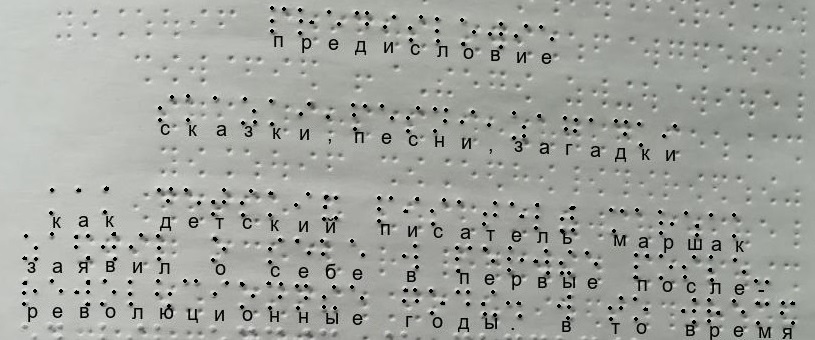 предисловие
сказки, песни, загадки
как детский писатель маршак
заявил о себе в первые после-
революционные годы. в то время